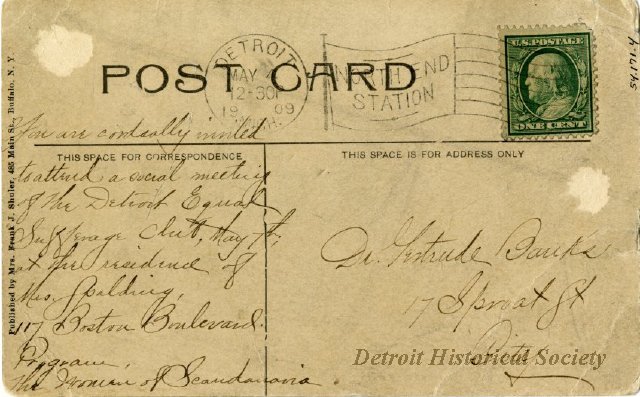 54.171.4
U.S. POSTAGE
ONE CENT
DETROIT
MAY
12-30
1909
MICH.
NORTH END
STATION
POST CARD
THIS SPACE FOR CORRESPONDENCE
THIS SPACE IS FOR ADDRESS ONLY
Published by Mrs. Frank J. Shuler, 485 Main St., Buffalo, N. Y.
You are cordially invited
to attend a social meeting
of the Detroit Equal
Sufferage Club, May 7th,
at the residence of
Mrs. Spalding,
117 Boston Boulevard.
Program,
The Women of Scandanavia.
Dr. Gertrude Banks
17 Sproat St
City
Detroit Historical Society